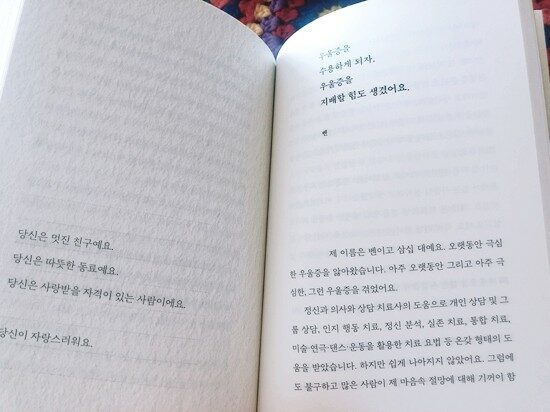 당신은 멋진 친구예요.
당신은 따뜻한 동료예요.
당신은 사랑받을 자격이 있는 사람이에요.
당신이 자랑스러워요.
우울증을
수용하게 되자,
우울증을
지배할 힘도 생겼어요.
벤
제 이름은 벤이고 삼십 대예요. 오랫동안 극심
한 우울증을 앓아왔습니다. 아주 오랫동안 그리고 아주 극
심한, 그런 우울증을 겪었어요.
정신과 의사와 상담 치료사의 도움으로 개인 상담 및 그
룹 상담, 인지 행동 치료, 정신 분석, 실존 치료, 통합 치료,
미술·연극·댄스·운동을 활용한 치료 요법 등 온갖 형태의 도
움을 받았습니다. 하지만 쉽게 나아지지 않았어요. 그럼에
도 불구하고 많은 사람이 제 마음속 절망에 대해 기꺼이 함